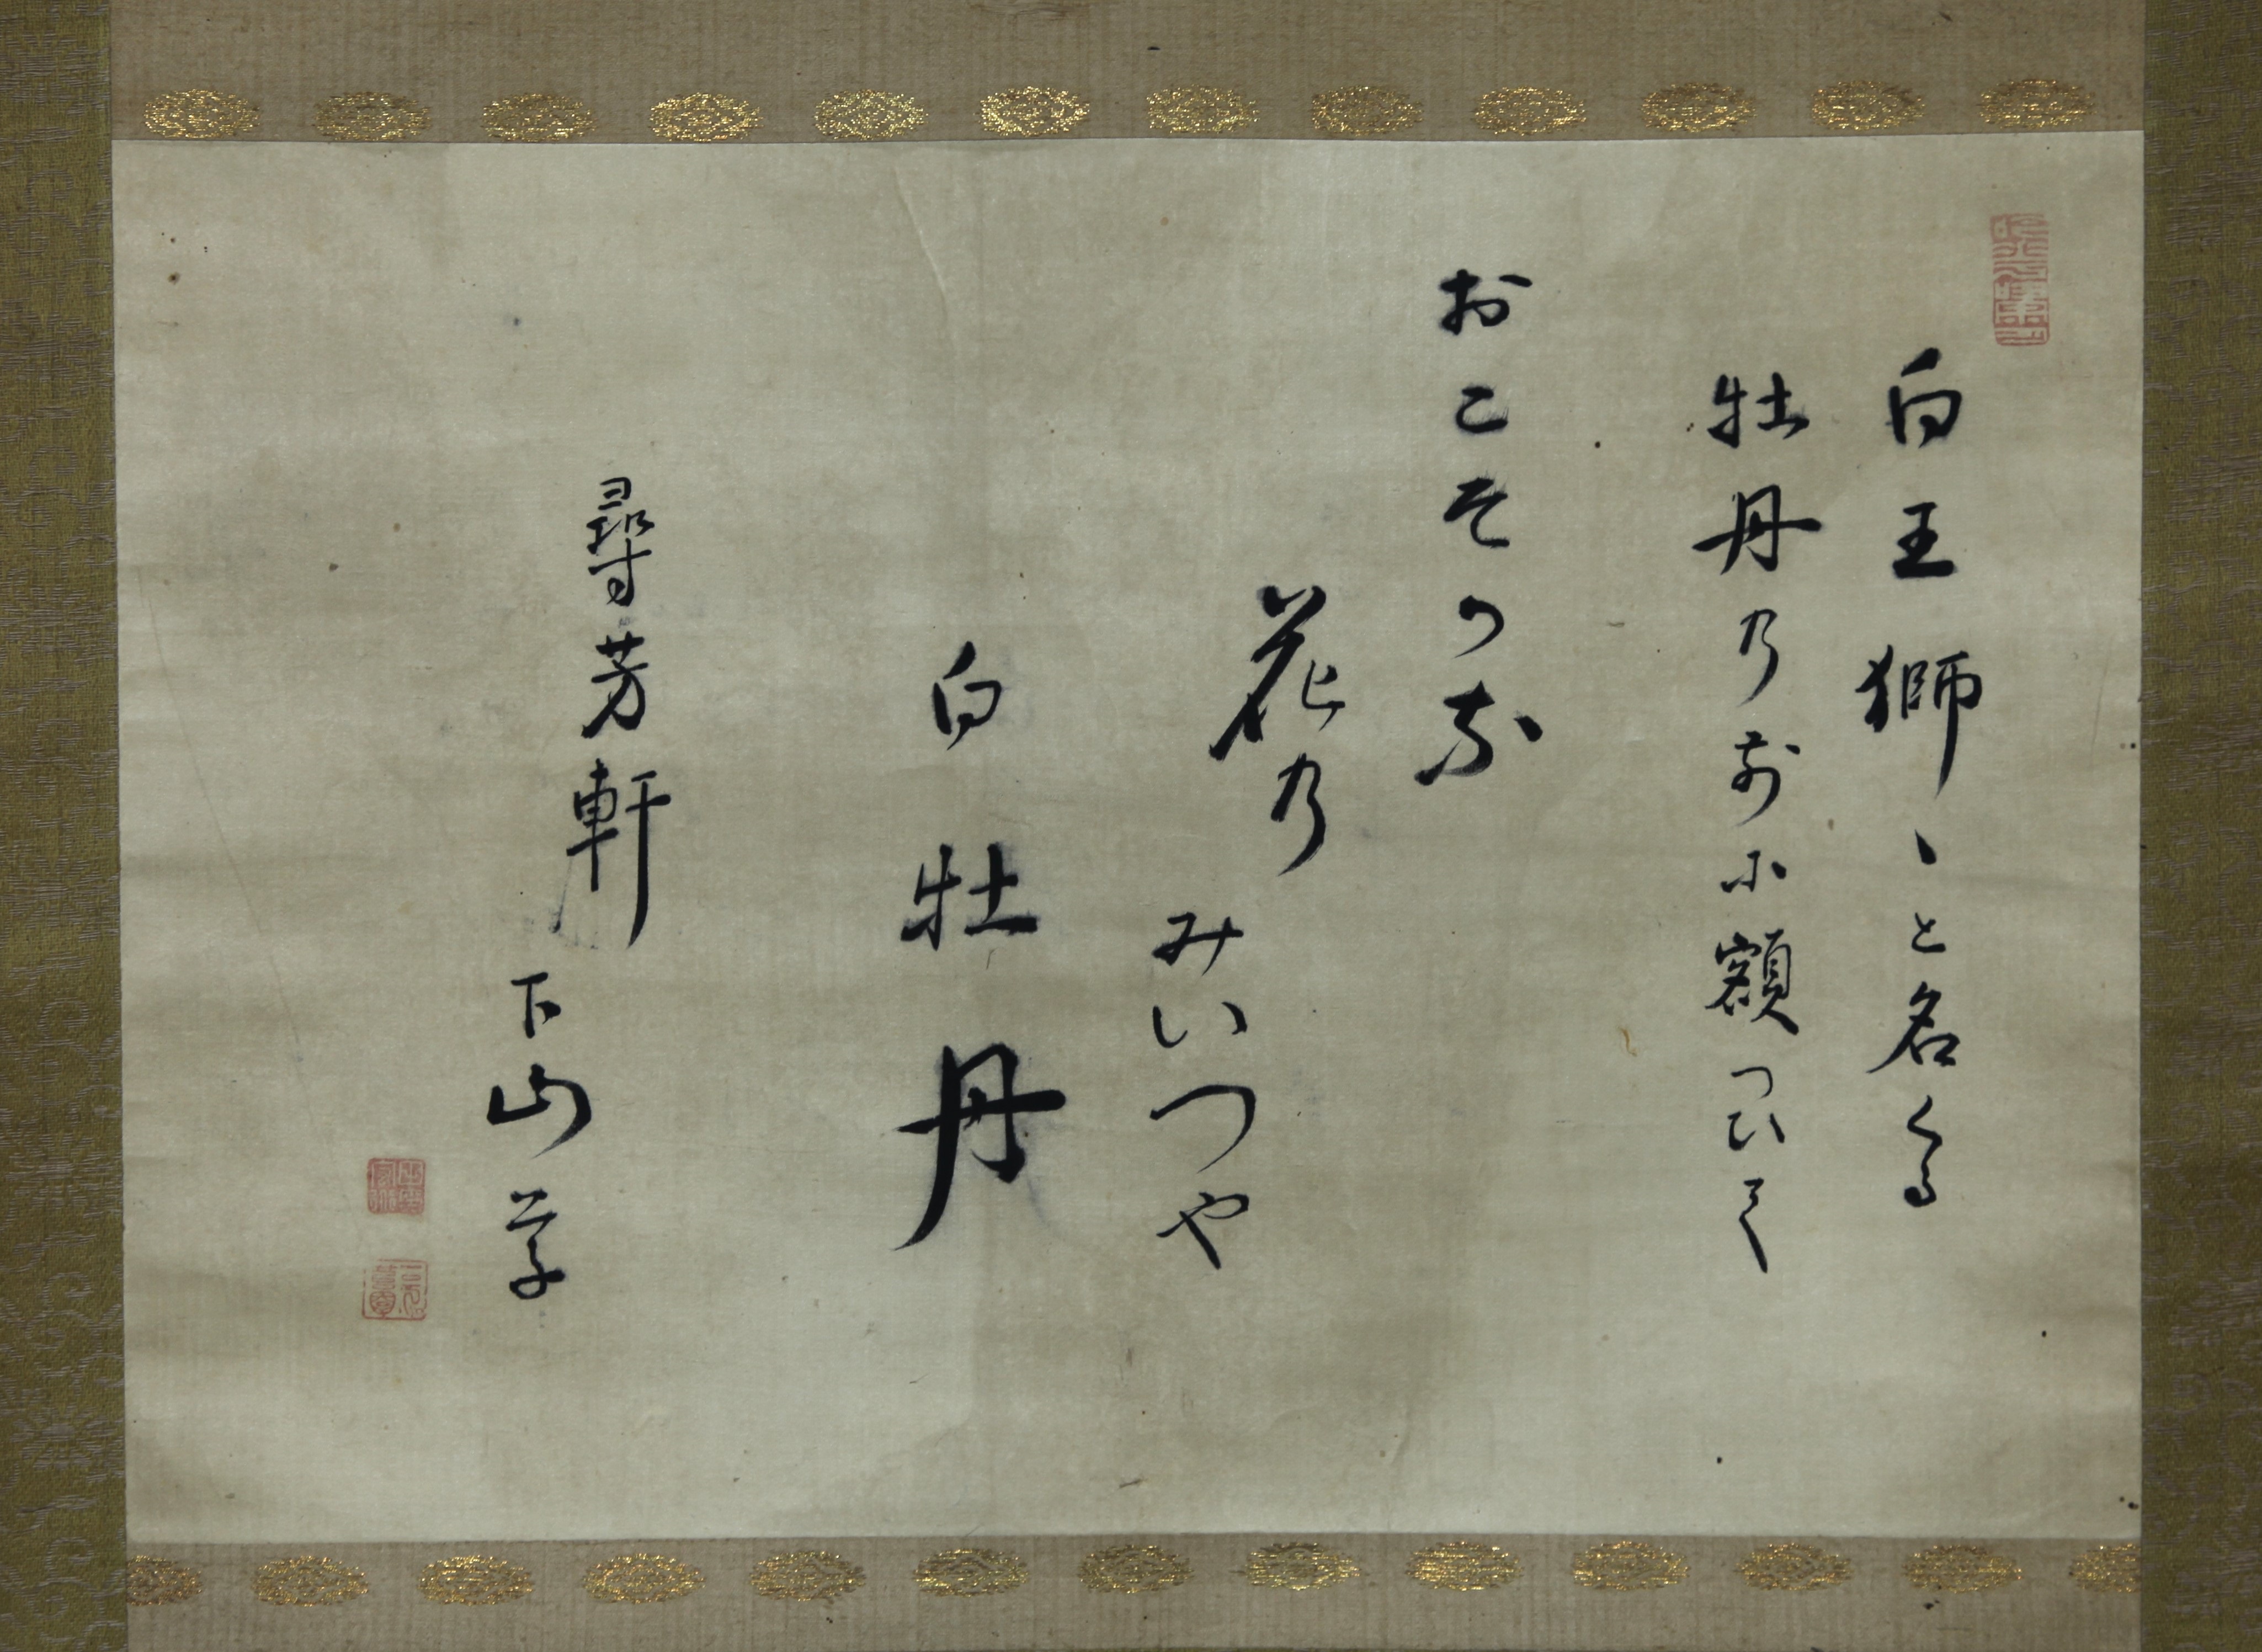 白王獅ゝと名くる
牡丹乃前に額つひて
おこそかな
花乃
みいつや
白牡丹
尋芳軒
下山草